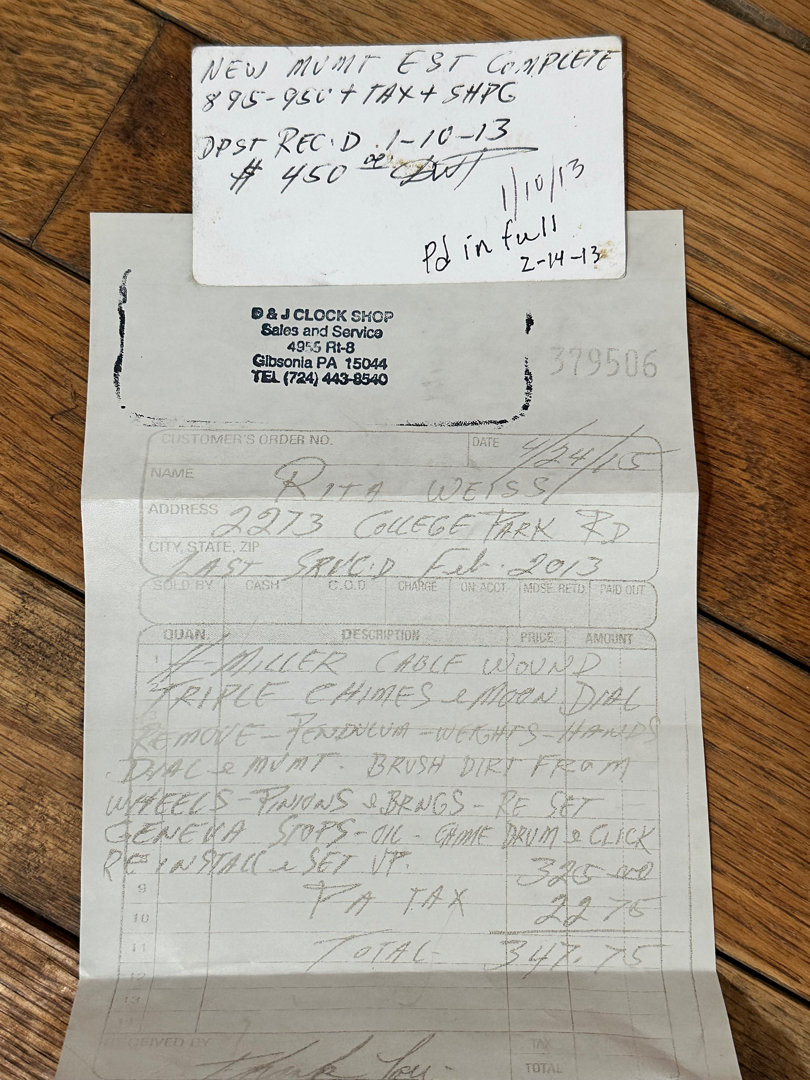 NEW MVMT EST COMPLETE
895-950 + TAX + SHPG
DPST REC'D. 1-10-13
# 450 00
1/10/13
Pd in full
2-14-13
D & J CLOCK SHOP
Sales and Service
4955 Rt-8
Gibsonia PA 15044
TEL (724) 443-8540
379506
CUSTOMER'S ORDER NO. DATE 4/24/15
NAME RITA WEISS
ADDRESS 2273 COLLEGE PARK RD
CITY, STATE, ZIP LAST SRVC'D Feb. 2013
SOLD BY CASH C.O.D. CHARGE ON ACCT. MDSE RETD. PAID OUT
QUAN. DESCRIPTION PRICE AMOUNT
1 H-MILLER CABLE WOUND
2 TRIPLE CHIMES & MOON DIAL
REMOVE-PENDULUM-WEIGHTS-HANDS
DIAL & MVMT. BRUSH DIRT FROM
WHEELS-PINIONS & BRNGS-RE SET
GENEVA STOPS-OIL- CHIME DRUM & CLICK
8 RE INSTALL & SET UP. 325 00
9 PA TAX 22 75
10
11 TOTAL- 347.75
12
13
RECEIVED BY Thank You- TAX
TOTAL